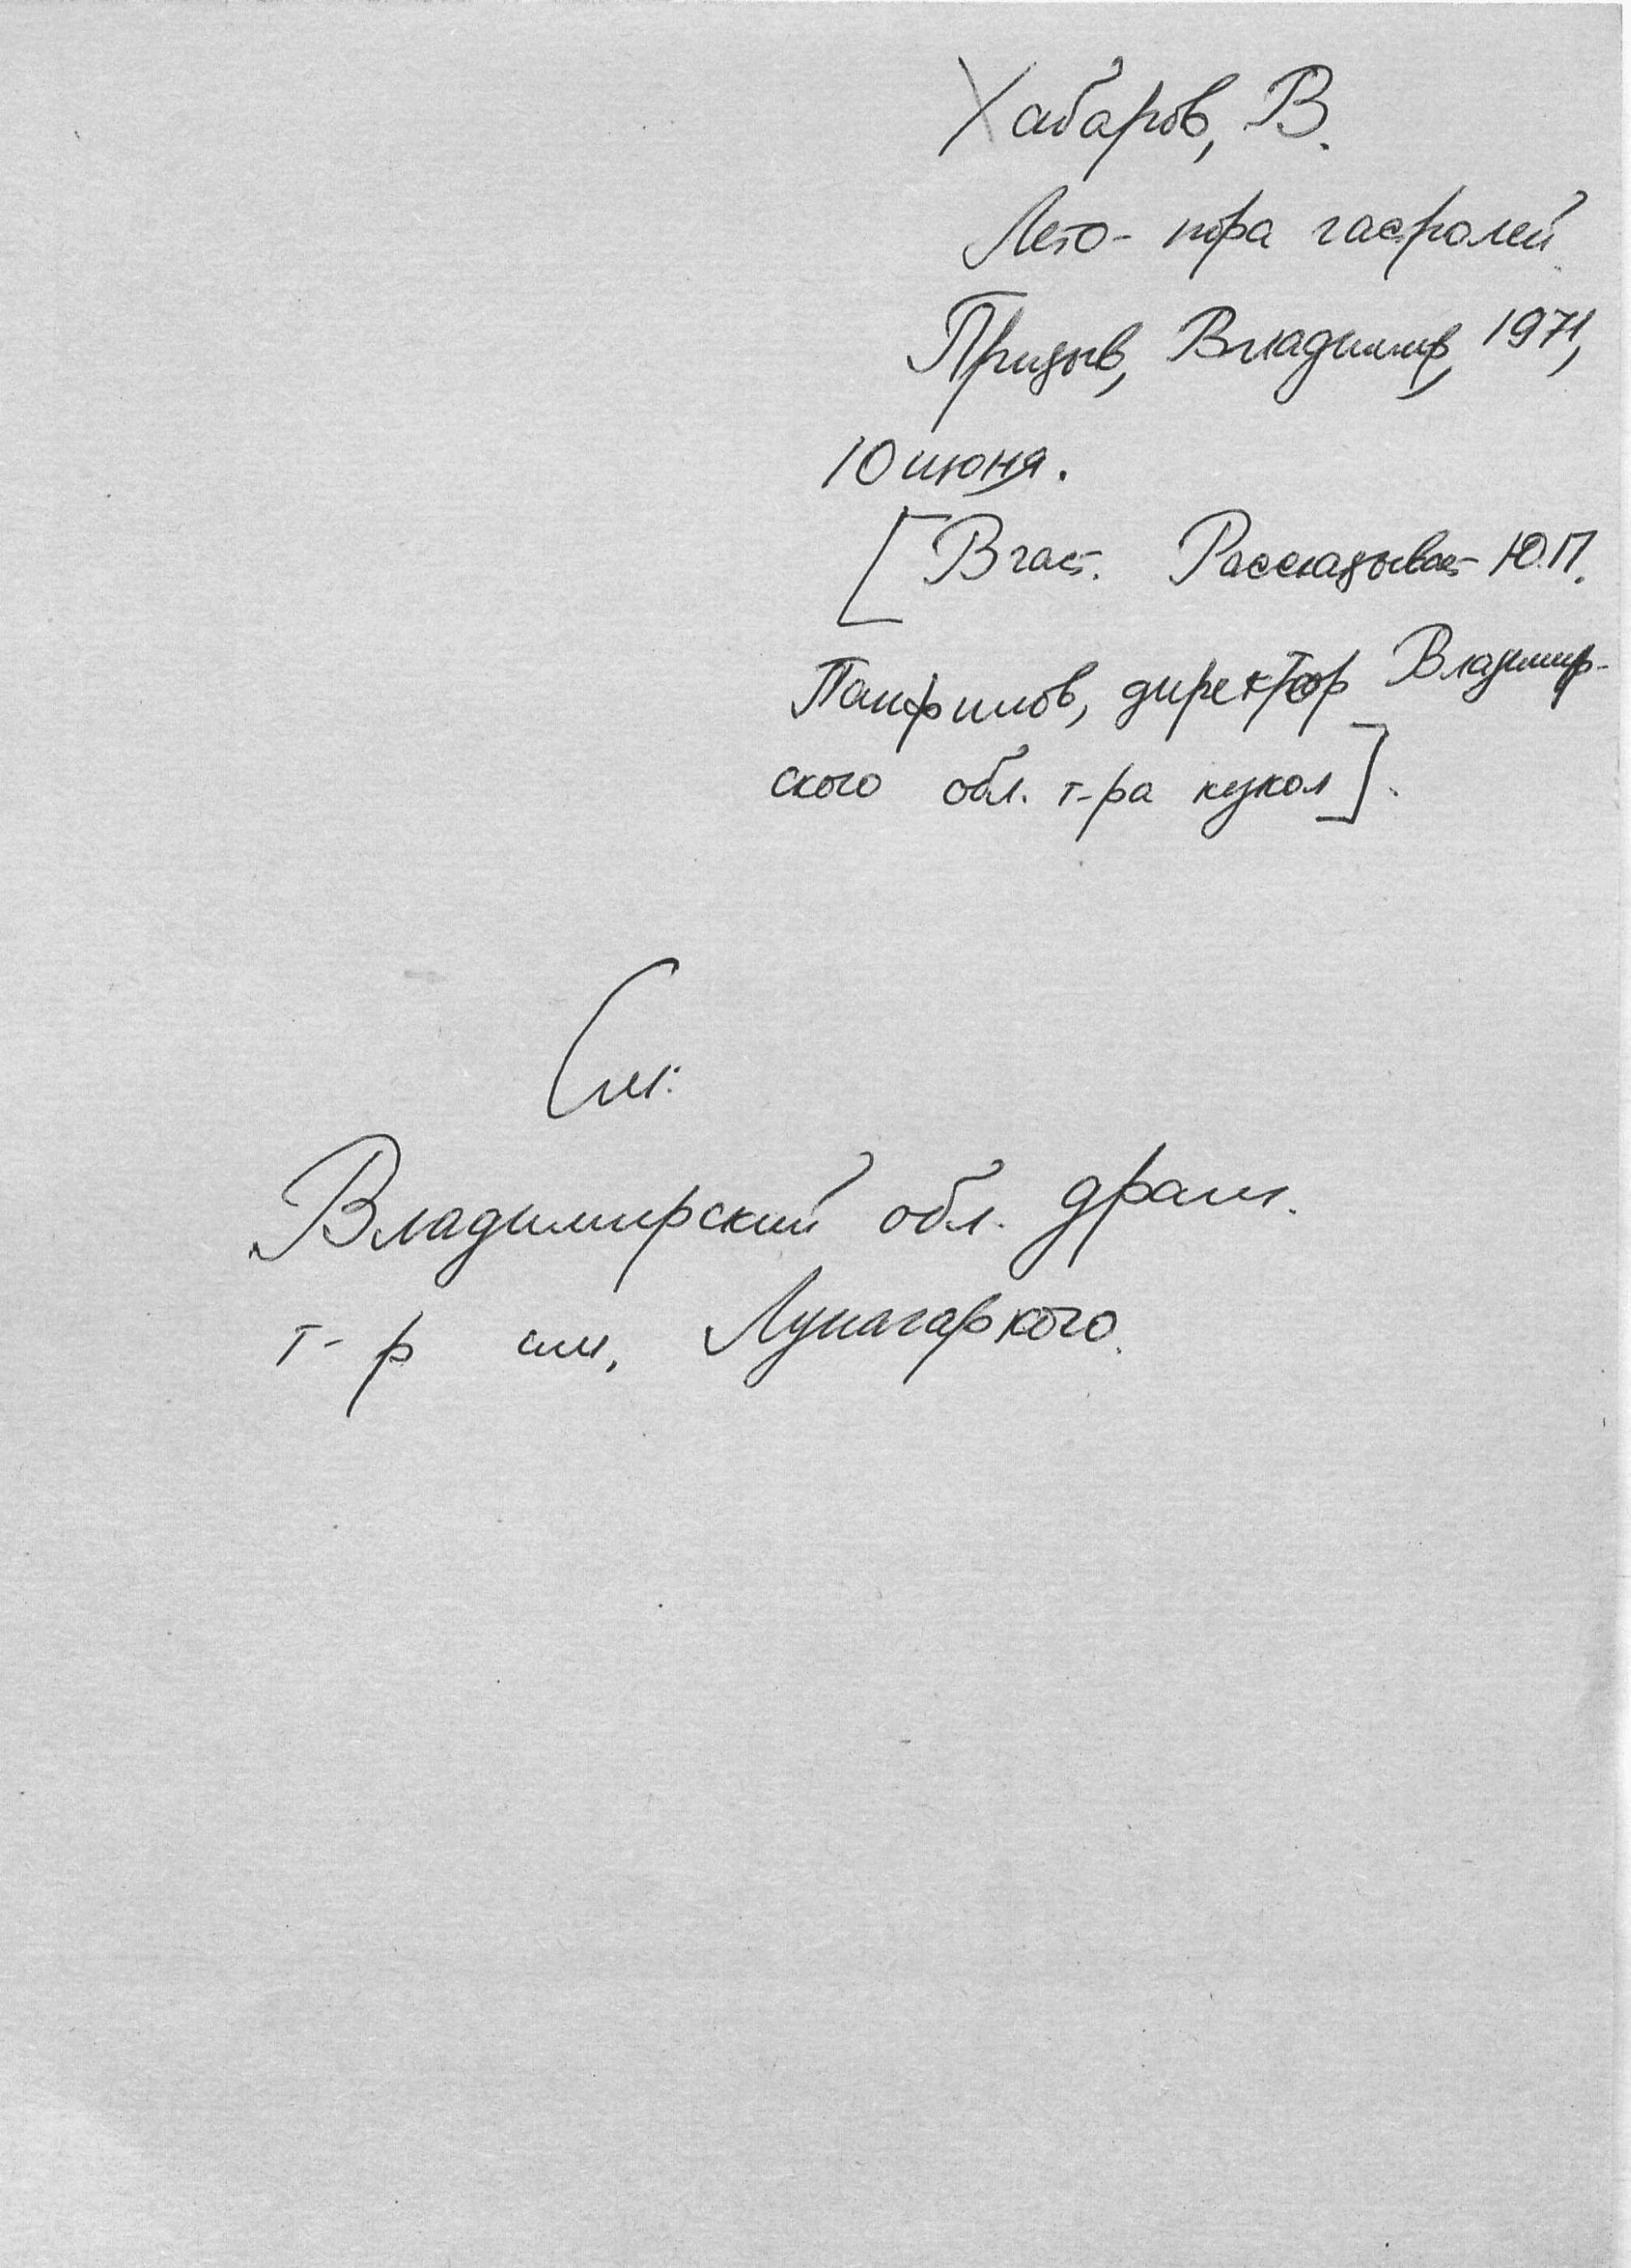 Хабаров, В.
Лето - пора гастролей
Призыв, Владимир, 1971,
10 июня.
[В част. Рассказывает Ю.П.
Панфилов, директор Владимир-
ского обл. т-ра кукол].
См:
Владимирский обл. драм.
т-р им. Луначарского.